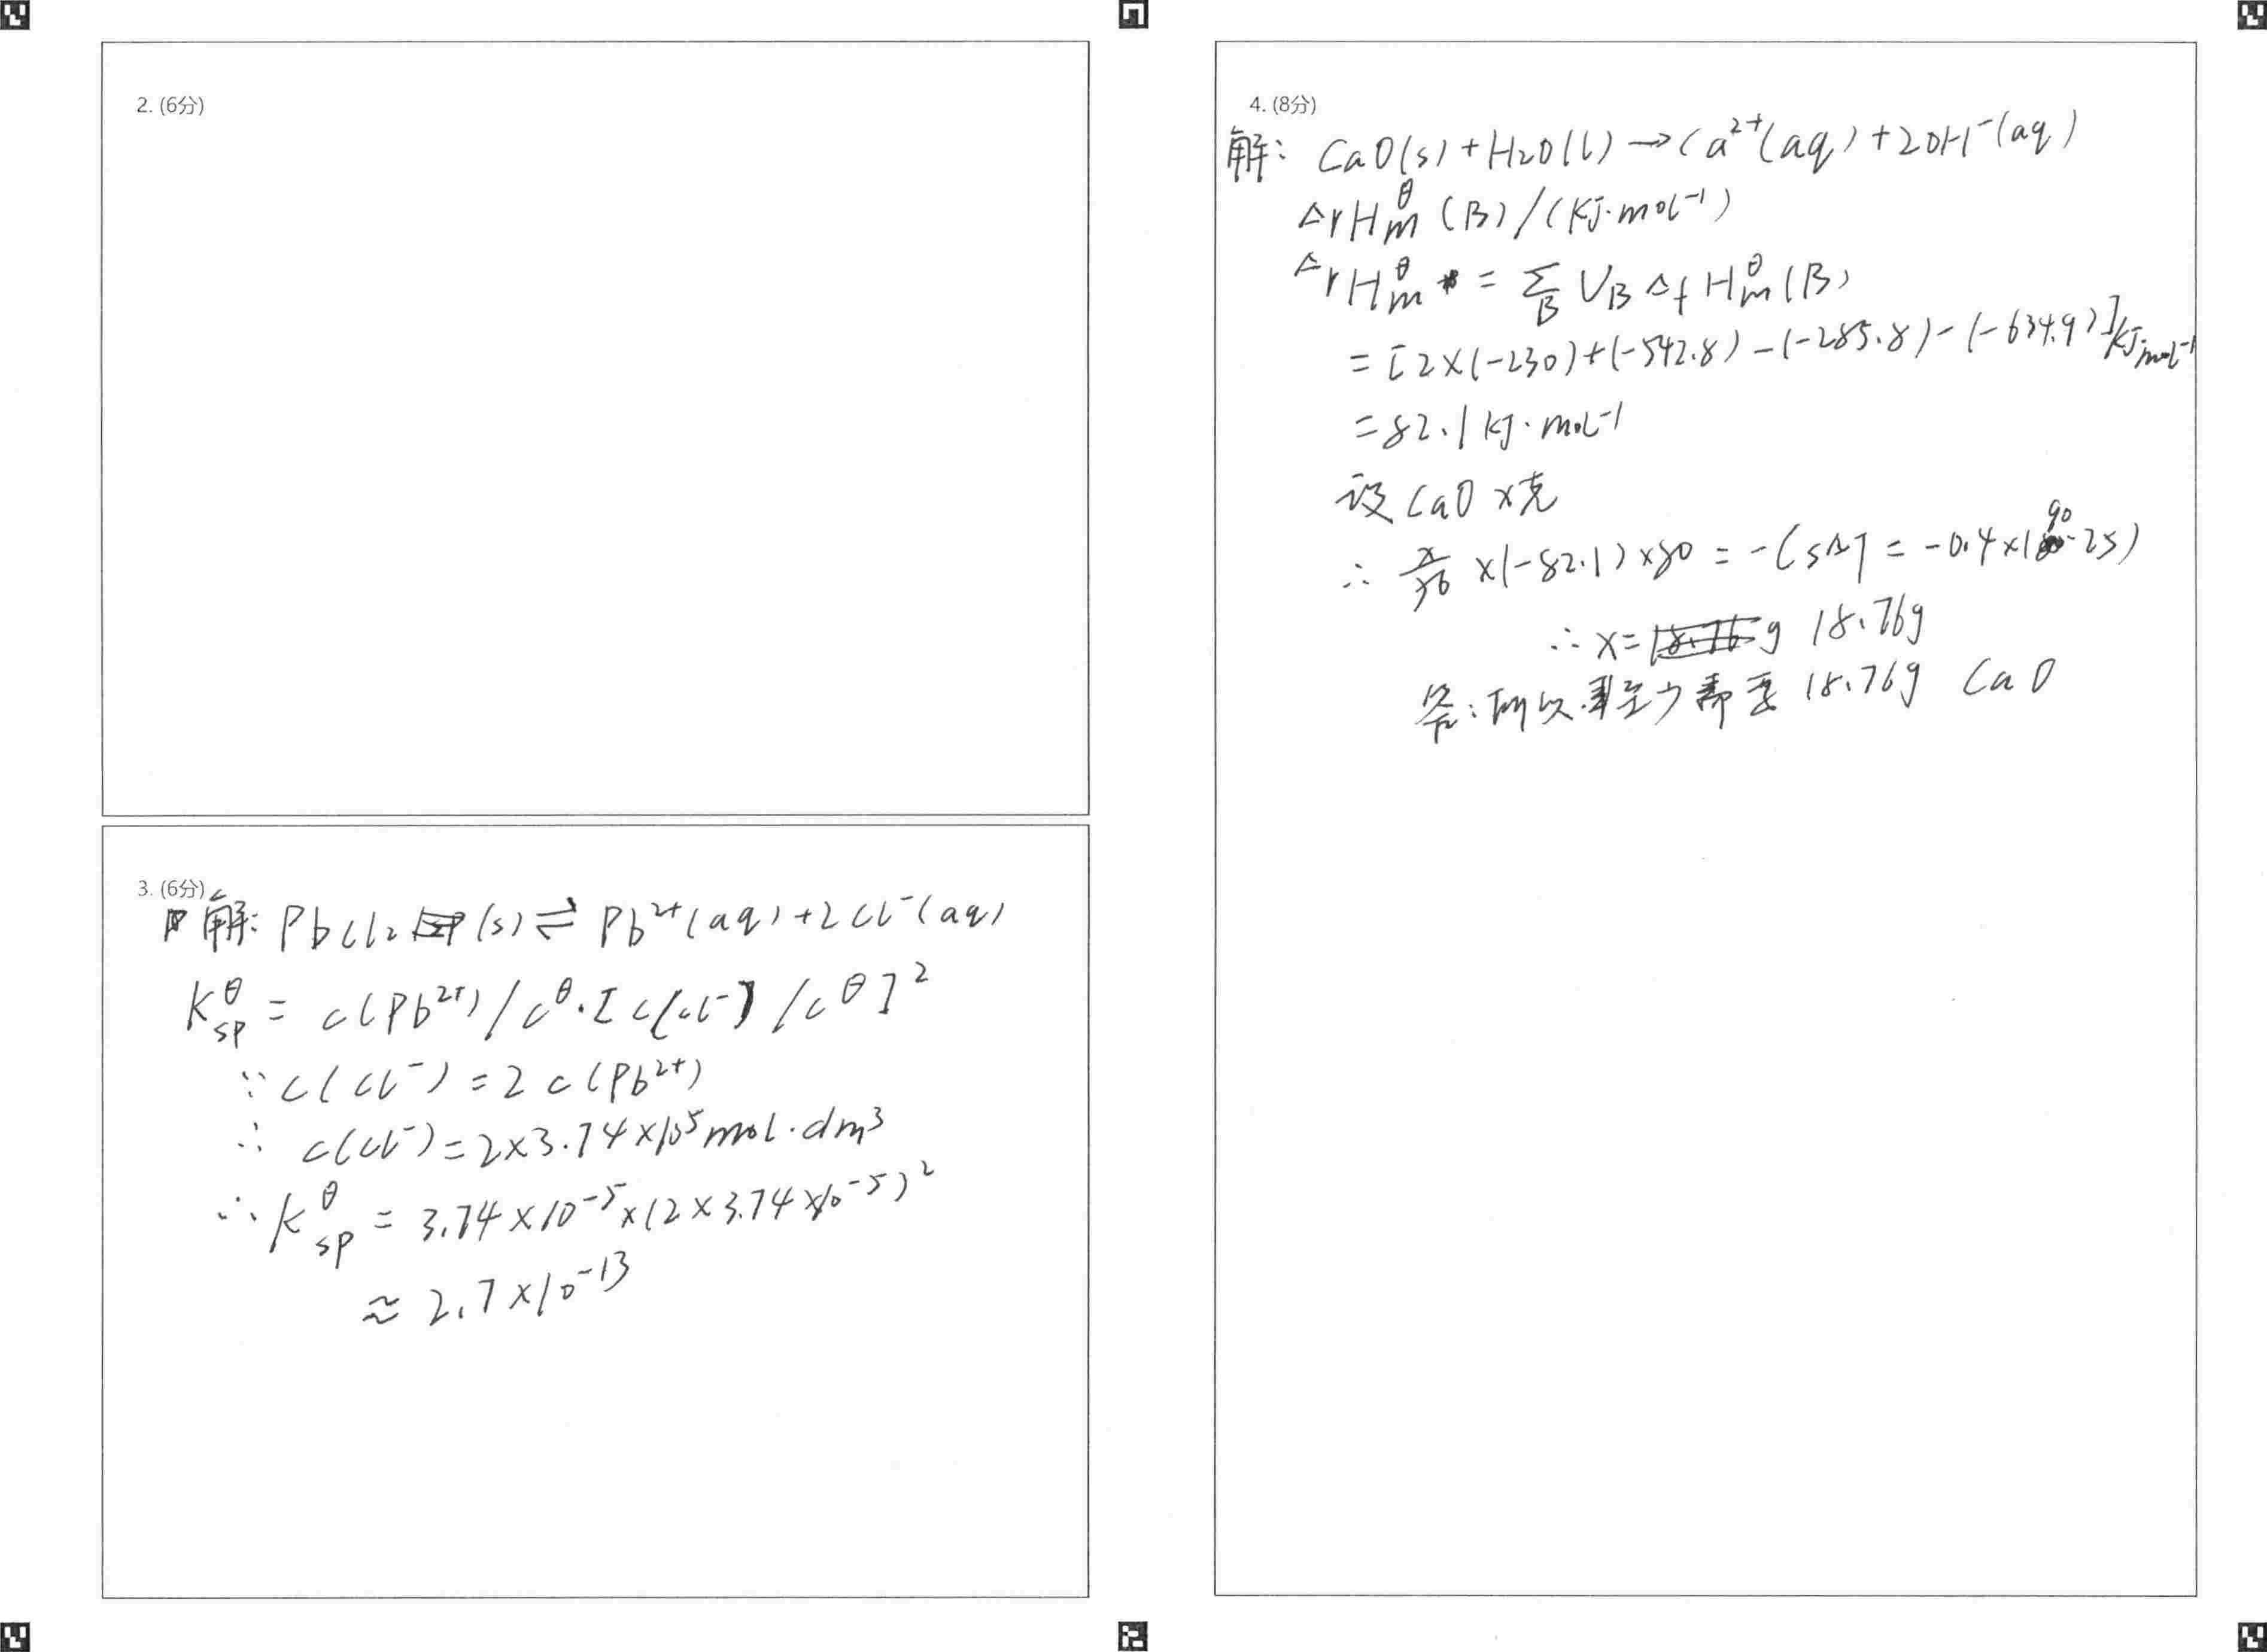 2. (6分)
3. (6分)
解: PbCl₂ (s) ⇌ Pb²⁺(aq) + 2Cl⁻(aq)
K^θ_sp = c(Pb²⁺)/c^θ·[c(Cl⁻)/c^θ]²
∵ c(Cl⁻) = 2c(Pb²⁺)
∴ c(Cl⁻) = 2×3.74×10⁵mol·dm³
∴ K^θ_sp = 3.74×10⁻⁵×(2×3.74×10⁻⁵)²
≈ 2.7×10⁻¹³
4. (8分)
解: CaO(s) + H₂O(l) → Ca²⁺(aq) + 2OH⁻(aq)
ΔrH^θ_m (B)/(KJ·mol⁻¹)
ΔrH^θ_m = Σ_B ν_B Δf H^θ_m (B)
= [2×(-230)+(-542.8)-(-285.8)-(-634.9)]kJ·mol⁻¹
= 82.1 kJ·mol⁻¹
设 CaO x克
∴ x/56 ×(-82.1)×80% = -CsΔT = -0.4×(90-25)
∴ x= g 18.76g
答: 所以至少需要 18.76g CaO